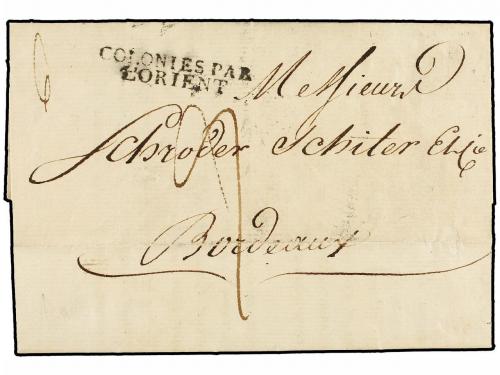 COLONIES PAR
L'ORIENT
Messieurs
Schroder Schiler Et Cie
Bordeaux